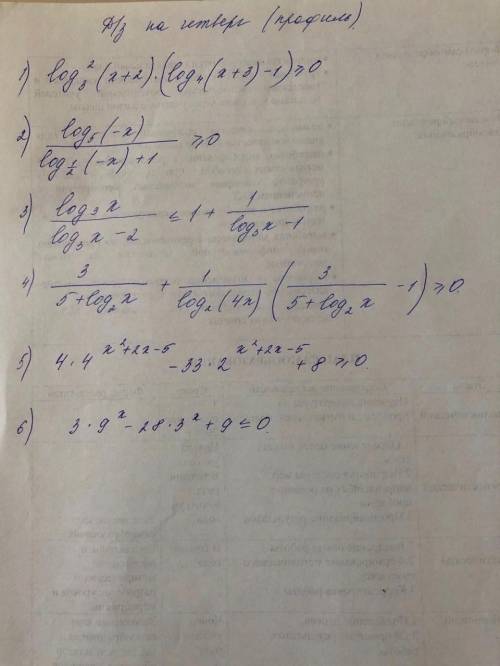 Д/з на четверг (профиль)
1) log₃²(x+2)·(log₄(x+3)-1)≥0
2) log₅(-x)/(log_{1/2}(-x)+1) ≥0
3) log₃x/(log₃x-2) ≤ 1 + 1/(log₃x-1)
4) 3/(5+log₂x) + 1/log₂(4x) (3/(5+log₂x) -1) ≥0
5) 4·4^{x²+2x-5} -33·2^{x²+2x-5} +8≥0
6) 3·9ˣ-28·3ˣ+9≤0